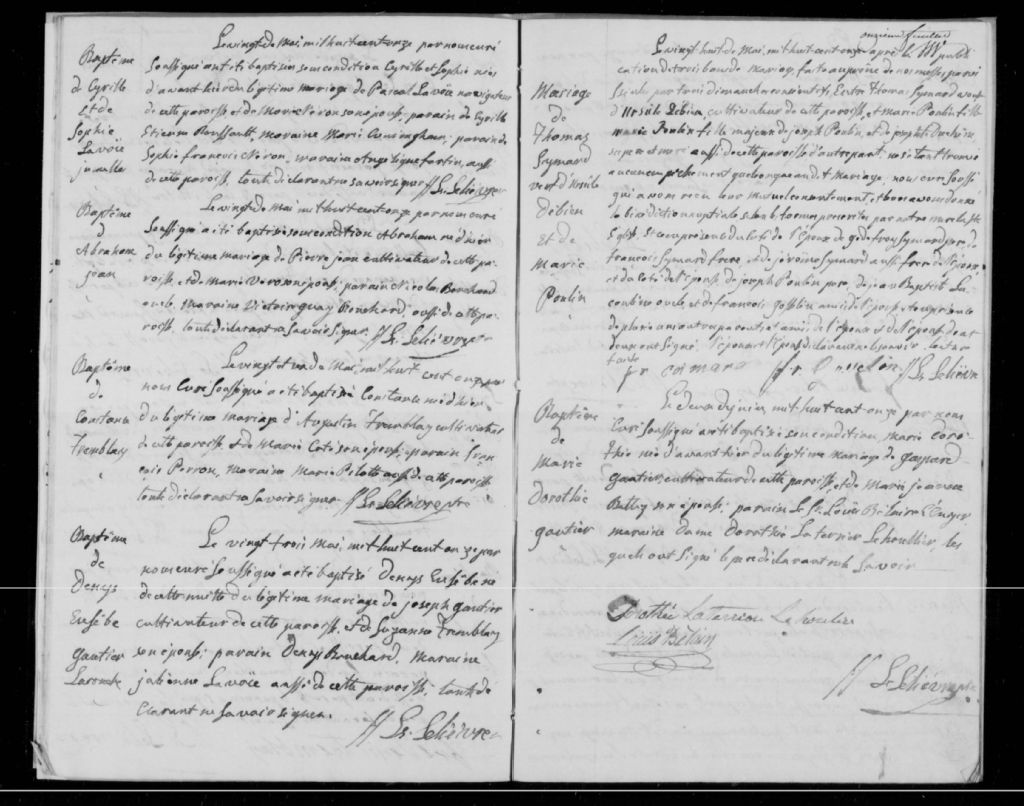 Baptême
de Cyrille
Et de
Sophie
Lavoie
jumelle
Le vingt de Mai, mil huit cent onze par nous curé
soussigné ont été baptisé sous condition Cyrille et Sophie nés
d'avant hier du légitime mariage de Pascal Lavoie navigateur
de cette paroisse et de Marie Néron son épouse, parain de Cyrille
Etienne Boussault, maraine Marie Cuningham, parain de
Sophie françois Néron, maraine Angélique fortin, aussi
de cette paroisse, tous déclarant ne savoir signer // Ls. Lelièvre ptre
Baptême
d'
Abraham
jean
Le vingt de Mai, mil huit cent onze par nous curé
soussigné a été baptisé sous condition Abraham né d'hier
du légitime mariage de Pierre jean cultivateur de cette pa-
roisse, et de Marie son épouse, parain Nicolas Bouchard
oncle, maraine Victoire guay Bouchard, aussi de cette pa-
roisse, tous déclarant ne savoir signer. // Ls. Lelièvre ptre
Baptême
de
Constance
Tremblay
Le vingt et un de Mai, mil huit cent onze par
nous Curé soussigné a été baptisée Constance née d'hier
du légitime mariage d'Augustin Tremblay cultivateur
de cette paroisse et de Marie Coté son épouse, parain fran-
çois Perron, maraine Marie Pilotte aussi de cette paroisse
tous déclarant ne savoir signer. // Ls. Lelièvre ptre
Baptême
de
Denys
Eusébe
gautier
Larouche
Le vingt trois Mai, mil huit cent onze par
nous curé soussigné a été baptisé Denys Eusébe né
de cette nuitte du légitime mariage de joseph gautier
cultivateur de cette paroisse, et de Suzanne Tremblay
son épouse; parain Denys Bouchard, maraine
julienne Lavoie aussi de cette paroisse; tous dé-
clarant ne savoir signer.
// Ls. Lelièvre
onzieme feuillet
Mariage
de
Thomas
Symard
veuf d'Ursule
Debien
Et de
Marie
Poulin
Le vingt huit de Mai, mil huit cent onze après la publi
cation de trois bans de mariage, faite au prône de nos messes parois
siales par trois dimanches consécutifs Entre Thomas Symard veuf
d'Ursule Debien, cultivateur de cette paroisse, et Marie Poulin
fille majeure de joseph Poulin, et de josephte Duchêne
ses pere et mere aussi de cette paroisse d'autre part, ne s'étant trouvé
aucun empêchement quelconque au dit mariage, nous curé soussi
gné avons reçu leur mutuel consentement, et leur avons donné
la bénédiction nuptiale selon la forme prescrite par notre mere la Ste
Eglise, Et ce en présence du coté de l'époux de godefroy Symard pere, de
françois Symard frere et de jérôme Symard aussi frere de l'époux,
et du coté de l'épouse de joseph Poulin pere, de jean Baptiste
oncle, et de françois Gosselin ami de l'épouse, et en présence
de plusieurs autres parents, et amis de l'époux et de l'épouse dont
deux ont signé, l'époux et l'épouse déclarant ne le savoir
// Ls. Lelièvre
Baptême
de
Marie
Dorothée
gautier
Le deux de juin, mil huit cent onze par nous
Curé soussigné a été baptisée sous condition, marie doro-
thée née d'avant hier du légitime mariage de gaspard
gautier cultivateur de cette paroisse, et de Marie jeanne
son épouse; parain le Sr. Loüis
maraine Dame Dorothée Laterriere Lehoullier, les
quels ont signé le pere déclarant ne le savoir
Dorothée Laterriere Lehoulier
Louis
// Ls. Lelièvre ptre